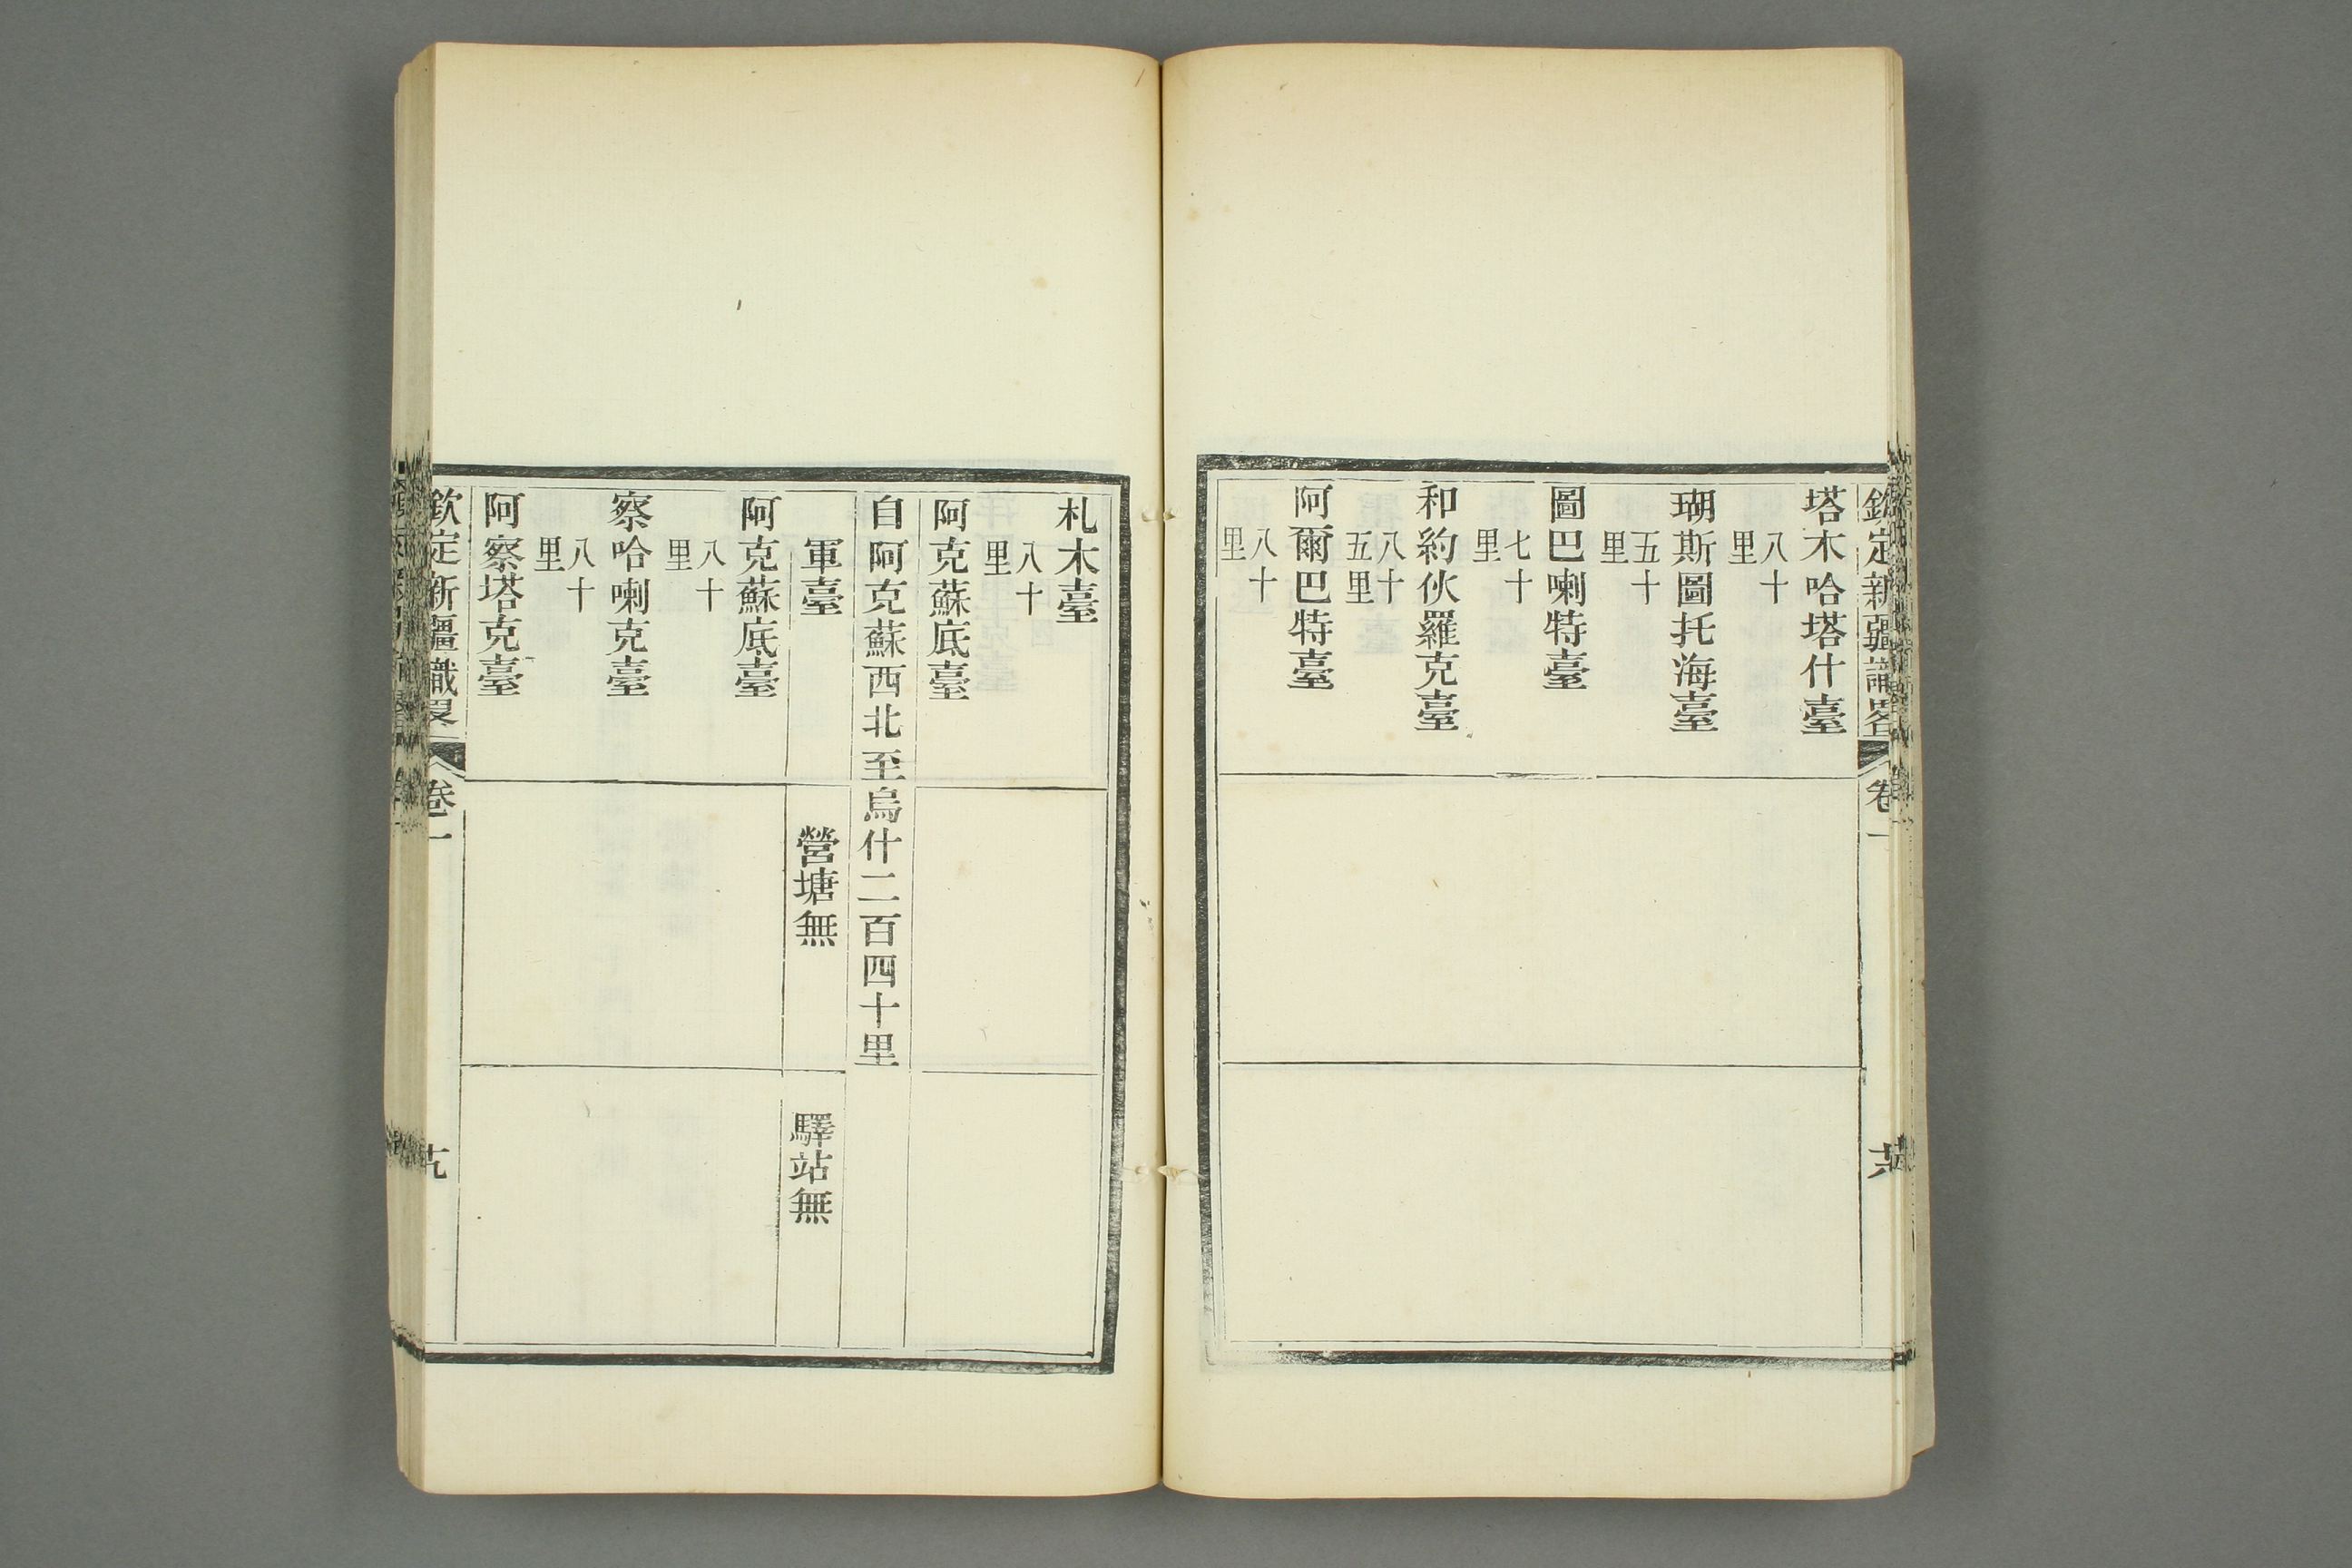 欽定新疆識畧
卷一
塔木哈塔什臺
八十
里
瑚斯圖托海臺
五十
里
圖巴喇特臺
七十
里
和約伙羅克臺
八十
五里
阿爾巴特臺
八十
里
札木臺
八十
里
阿克蘇底臺
自阿克蘇西北至烏什二百四十里
軍臺
營塘無
驛站無
阿克蘇底臺
八十
里
察哈喇克臺
八十
里
阿察塔克臺
欽定新疆識畧
卷一